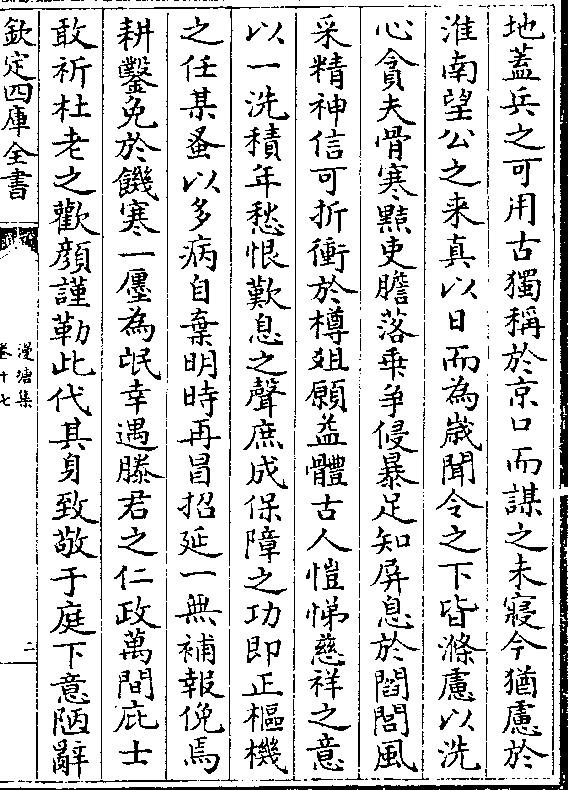 地蓋兵之可用古獨稱於京口而謀之未寢今猶慮於
淮南望公之来真以日而為歲聞令之下皆滌慮以洗
心貪夫骨寒㸃吏膽落乗爭侵暴足知屏息於閻閭風
采精神信可折衝於樽爼願益體古人愷悌慈祥之意
以一洗積年愁恨歎息之聲庶成保障之功即正樞機
之任某蚤以多病自棄明時再冒招延一無補報俛焉
耕鑿免於饑寒一㕓為氓幸遇滕君之仁政萬間庇士
敢祈杜老之歡顔謹勒此代其身致敬于庭下意陋辭
欽定四庫全書
漫塘集
卷十七
二